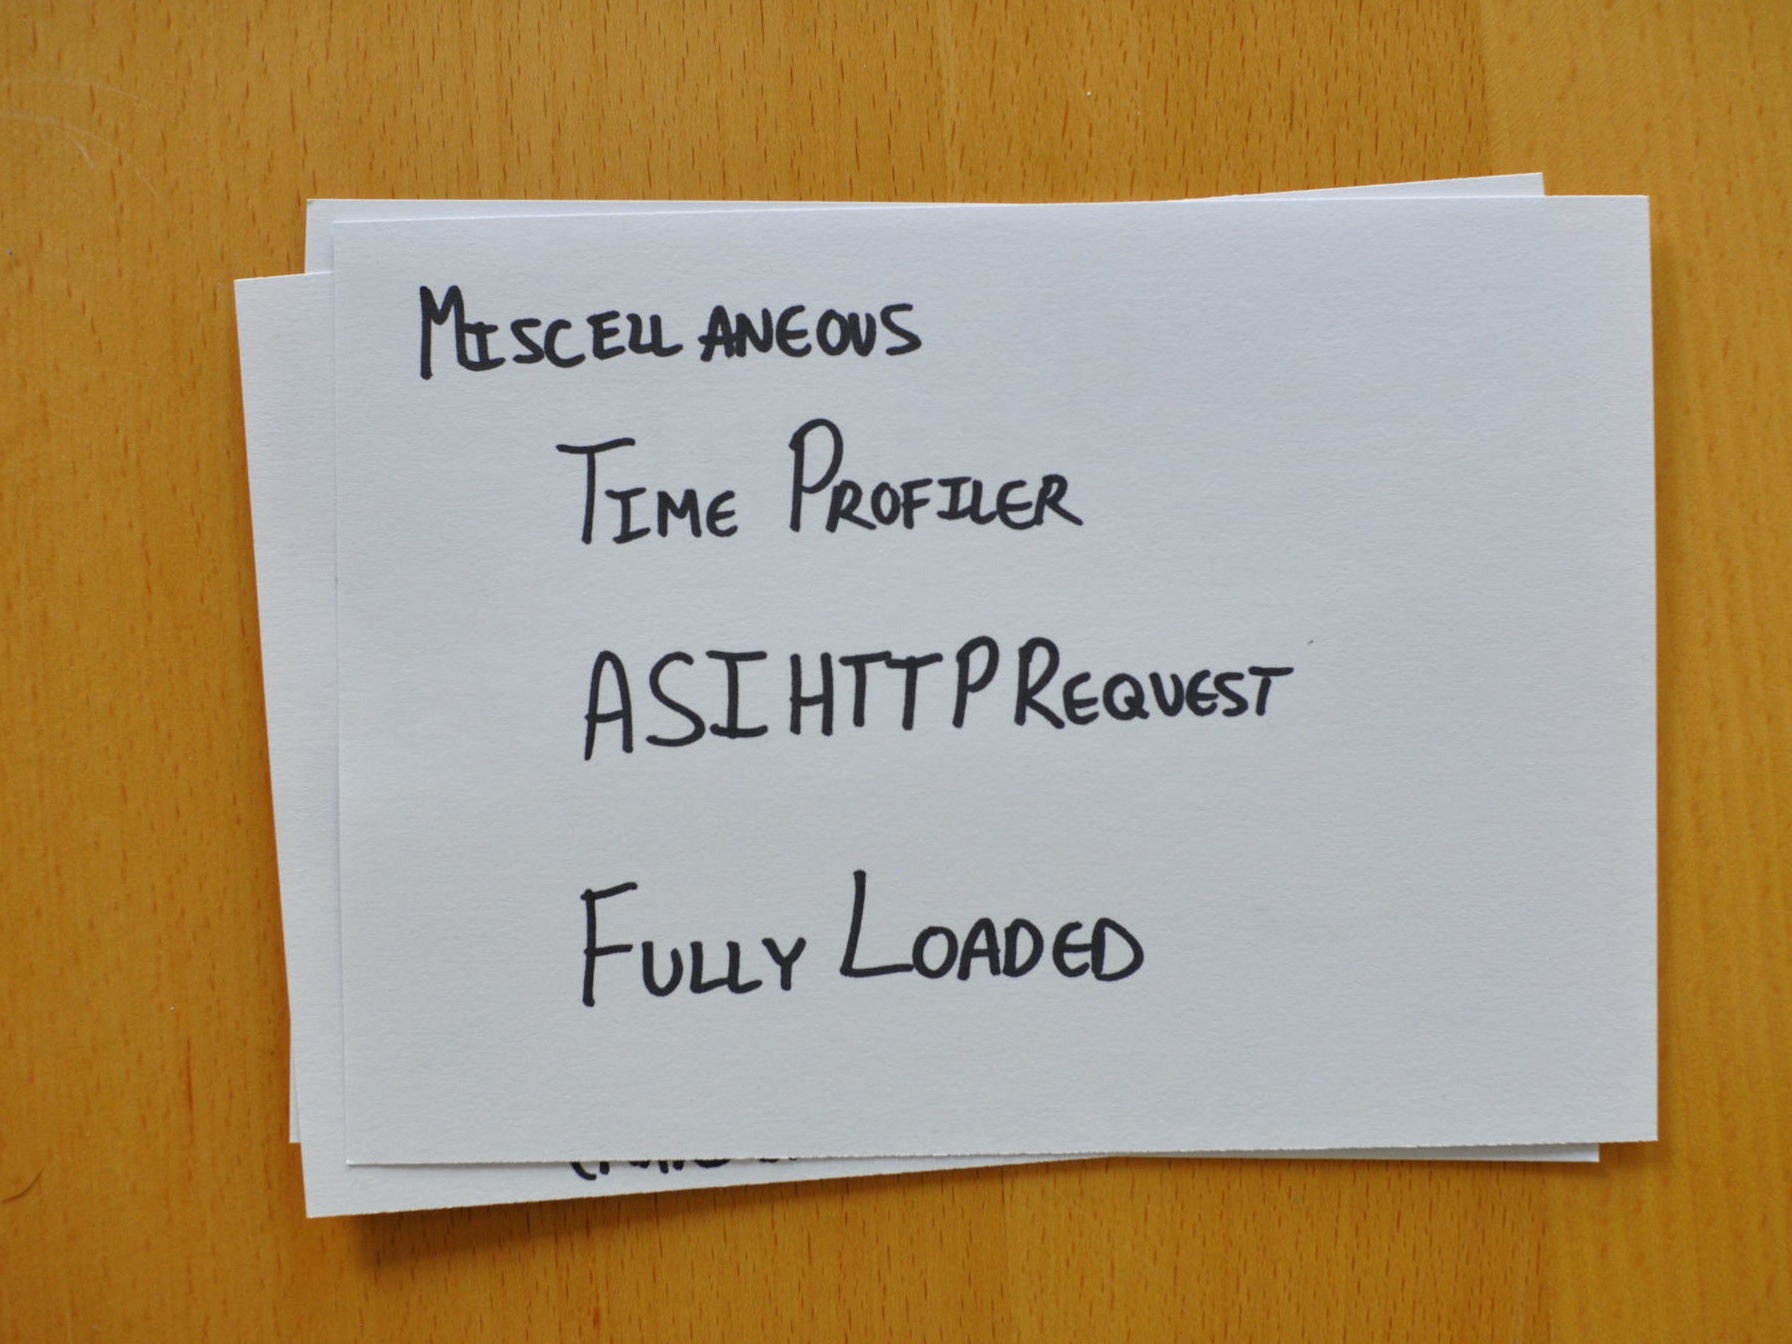 MISCELLANEOUS
TIME PROFILER
ASIHTTPREQUEST
FULLY LOADED